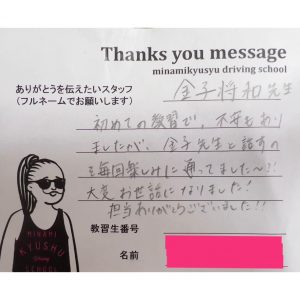 Thanks you message
minamikyusyu driving school
ありがとうを伝えたいスタッフ
(フルネームでお願いします)
金子将和 先生
初めての教習で、不安もあり
ましたが、金子先生と話すの
を毎回楽しみに通ってました〜!!
大変お世話になりました!
担当ありがとうございました!!
教習生番号
名前
MINAMI
KYUSHU
Driving
SCHOOL